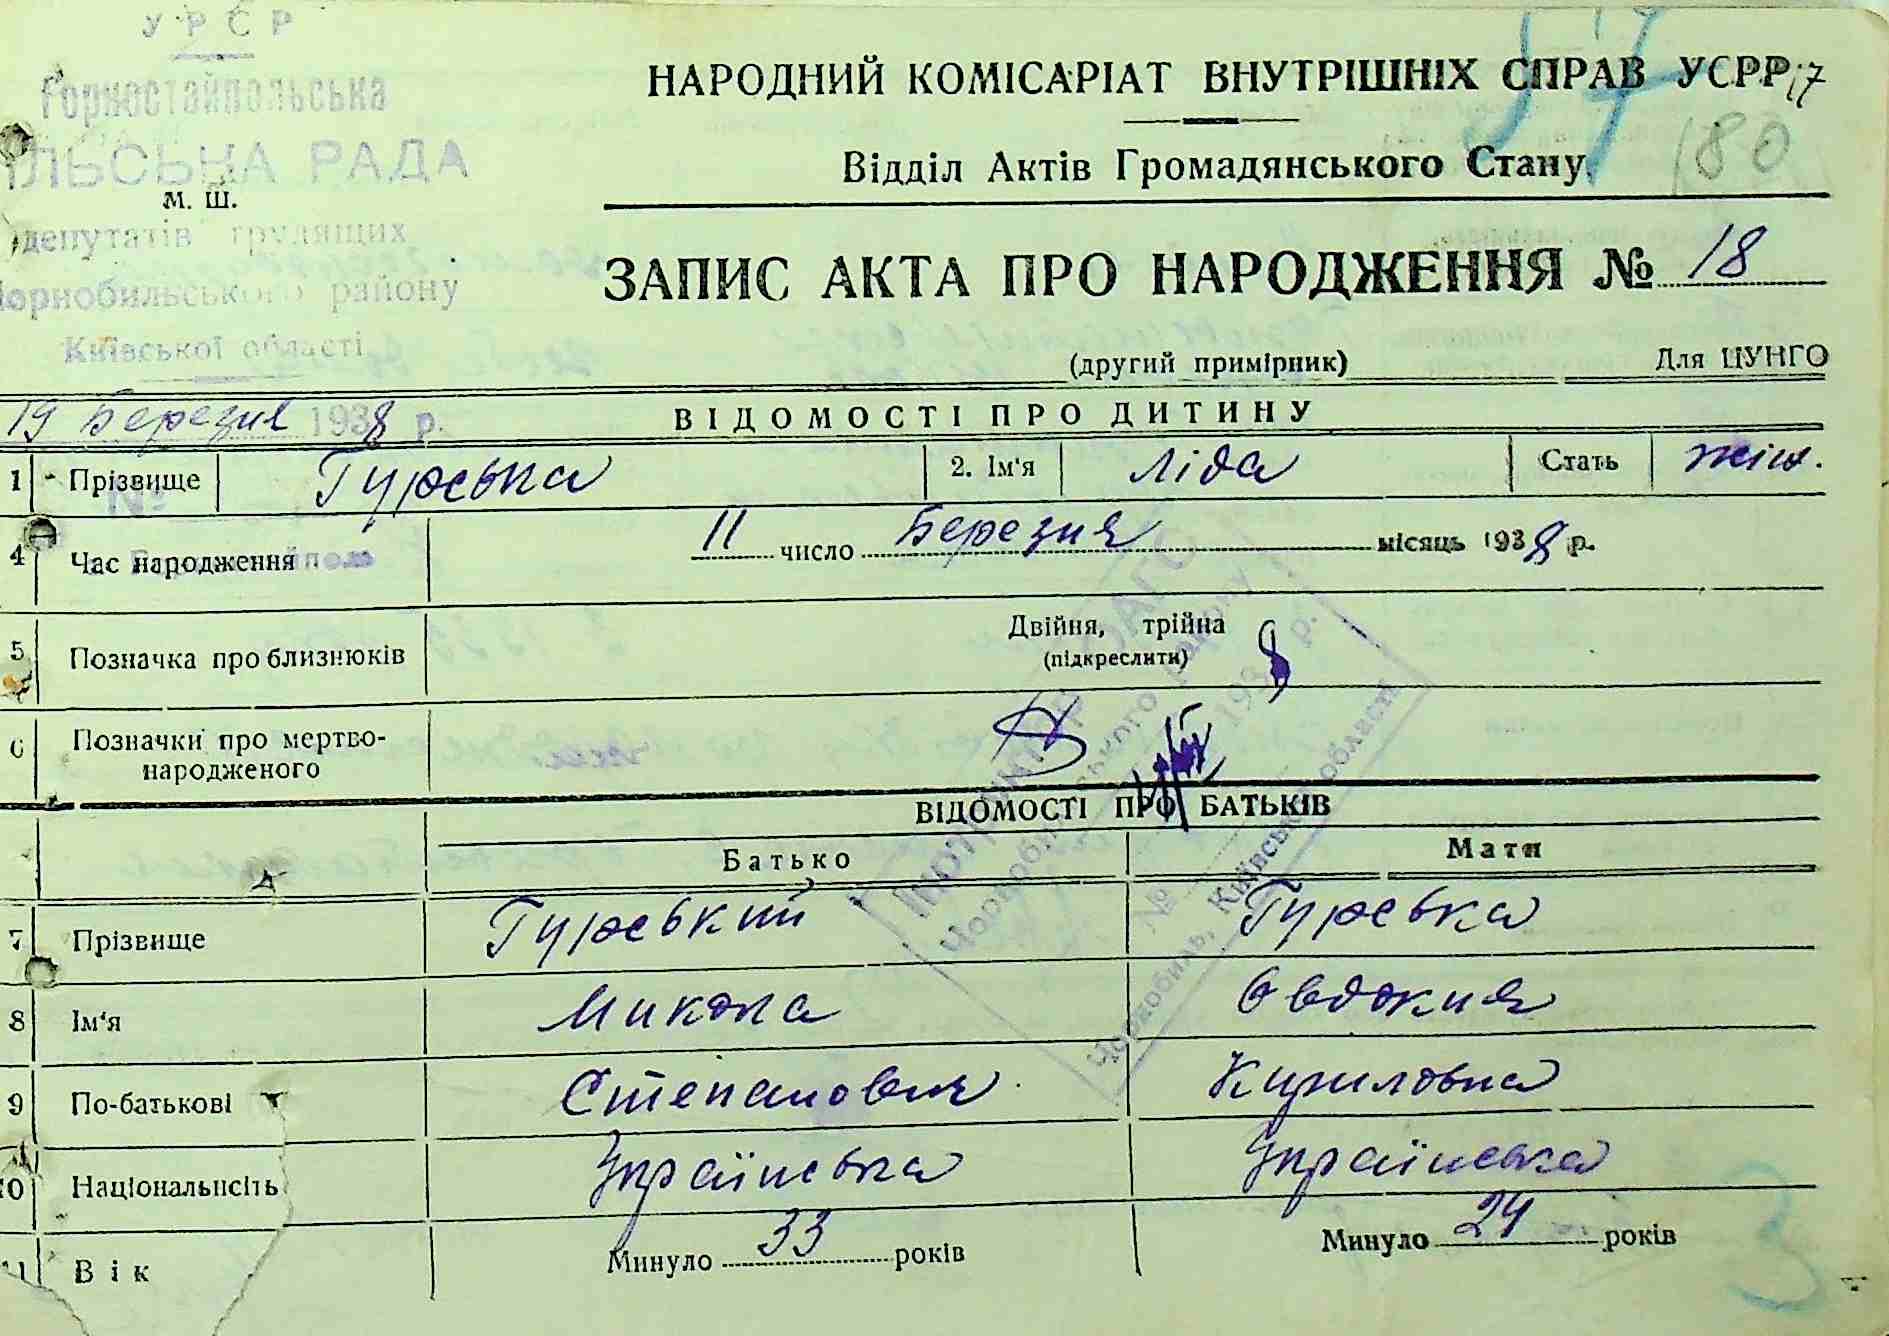 УРСР
Горностайпольська
ІЛЬСЬКА РАДА
м. Ш.
депутатів трудящих
Чорнобильського району
Київської області
НАРОДНИЙ КОМІСАРІАТ ВНУТРІШНІХ СПРАВ УСРР
17
57
180
Відділ Актів Громадянського Стану
ЗАПИС АКТА ПРО НАРОДЖЕННЯ № 18
(другий примірник) Для ЦУНГО
19 Березня 1938 р.
ВІДОМОСТІ ПРО ДИТИНУ
1 Прізвище Гурська 2. Ім'я Ліда Стать жін.
№
4 Час народження 11 число Березня місяць 1938 р.
5 Позначка про близнюків Двійня, трійна
(підкреслити)
6 Позначки про мертво-
народженого
ЗАГС
Чорнобильського району
№ 1938 р.
Чорнобиль, Київської області
ВІДОМОСТІ ПРО БАТЬКІВ
Батько Мати
7 Прізвище Гурський Гурська
8 Ім'я Микола Овдокия
9 По-батькові Степанович Кириловна
10 Національність Українська Українська
11 Вік Минуло 33 років Минуло 24 років
3